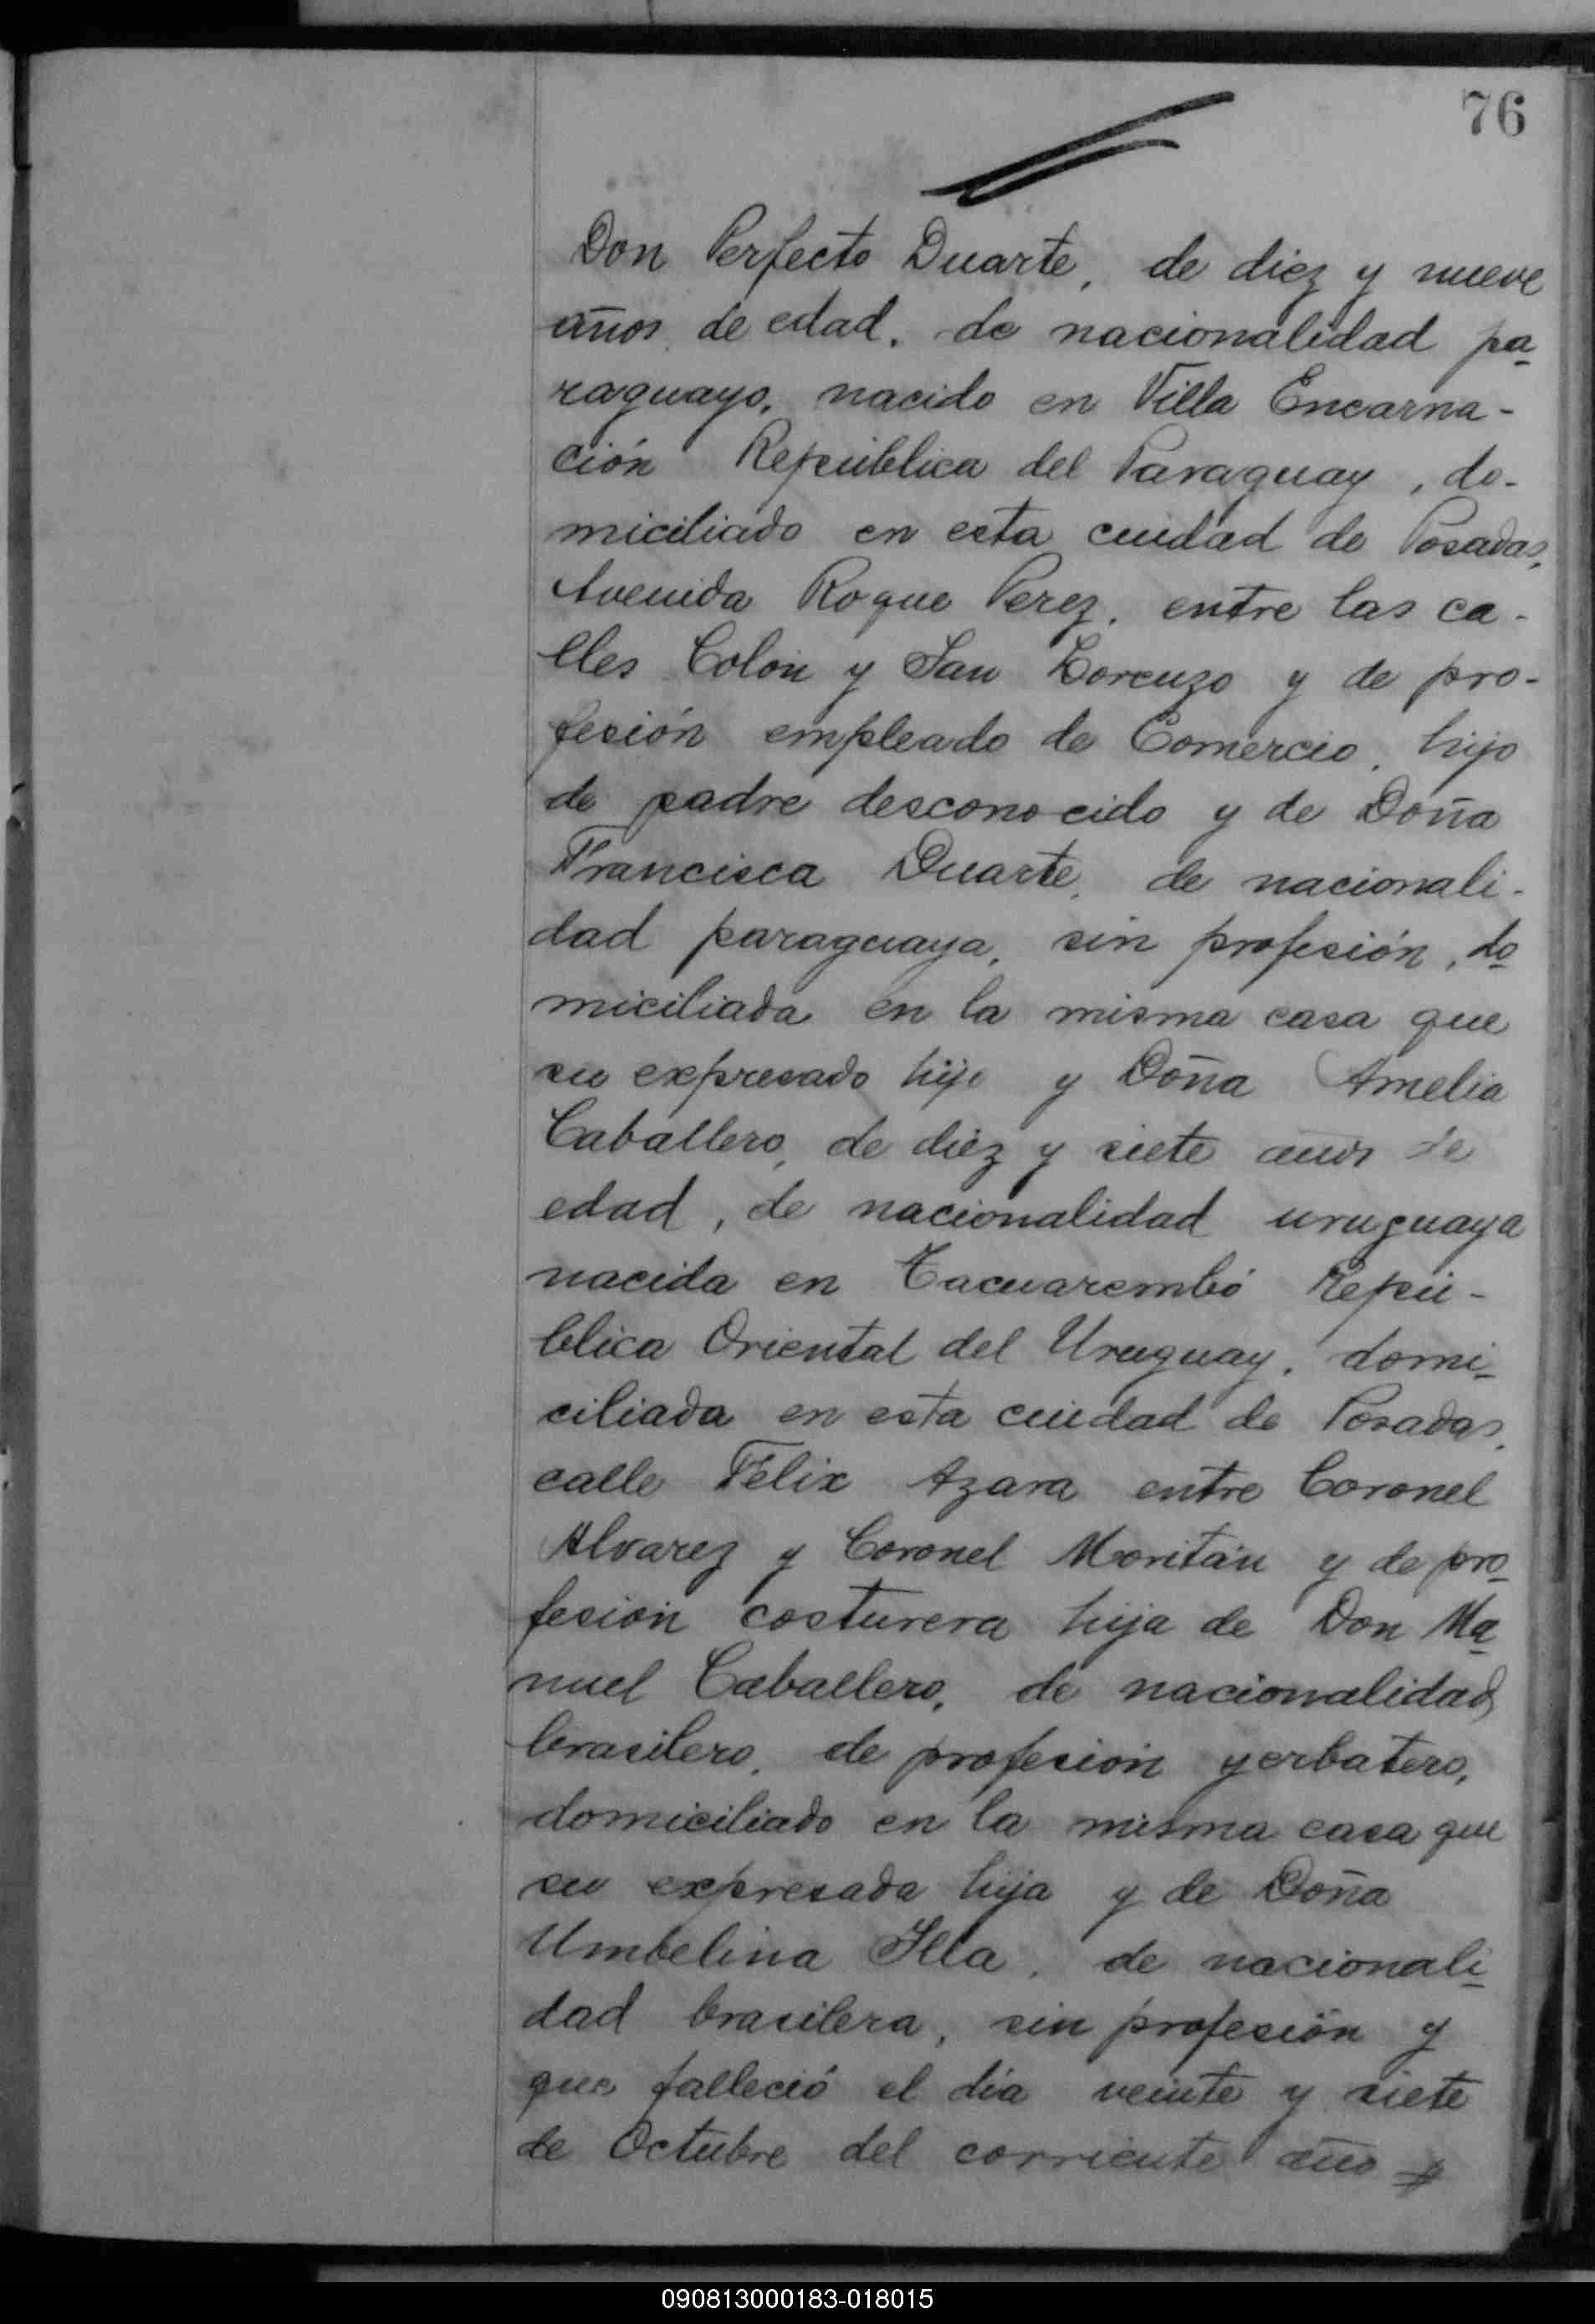 76
Don Perfecto Duarte, de diez y nueve
años de edad, de nacionalidad pa-
raguayo, nacido en Villa Encarna-
ción República del Paraguay, do-
miciliado en esta ciudad de Posadas,
Avenida Roque Perez, entre las ca-
lles Colón y San Lorenzo y de pro-
fesión empleado de Comercio, hijo
de padre desconocido y de Doña
Francisca Duarte, de nacionali-
dad paraguaya, sin profesión, do-
miciliada en la misma casa que
su expresado hijo y Doña Amelia
Caballero, de diez y siete años de
edad, de nacionalidad uruguaya
nacida en Tacuarembó Repú-
blica Oriental del Uruguay, domi-
ciliada en esta ciudad de Posadas,
calle Felix Azara entre Coronel
Alvarez y Coronel Moritán y de pro-
fesión costurera hija de Don Ma-
nuel Caballero, de nacionalidad
brasilero, de profesión yerbatero,
domiciliado en la misma casa que
su expresada hija y de Doña
Umbelina Illa, de nacionali-
dad brasilera, sin profesión y
que falleció el día veinte y siete
de Octubre del corriente año
090813000183-018015